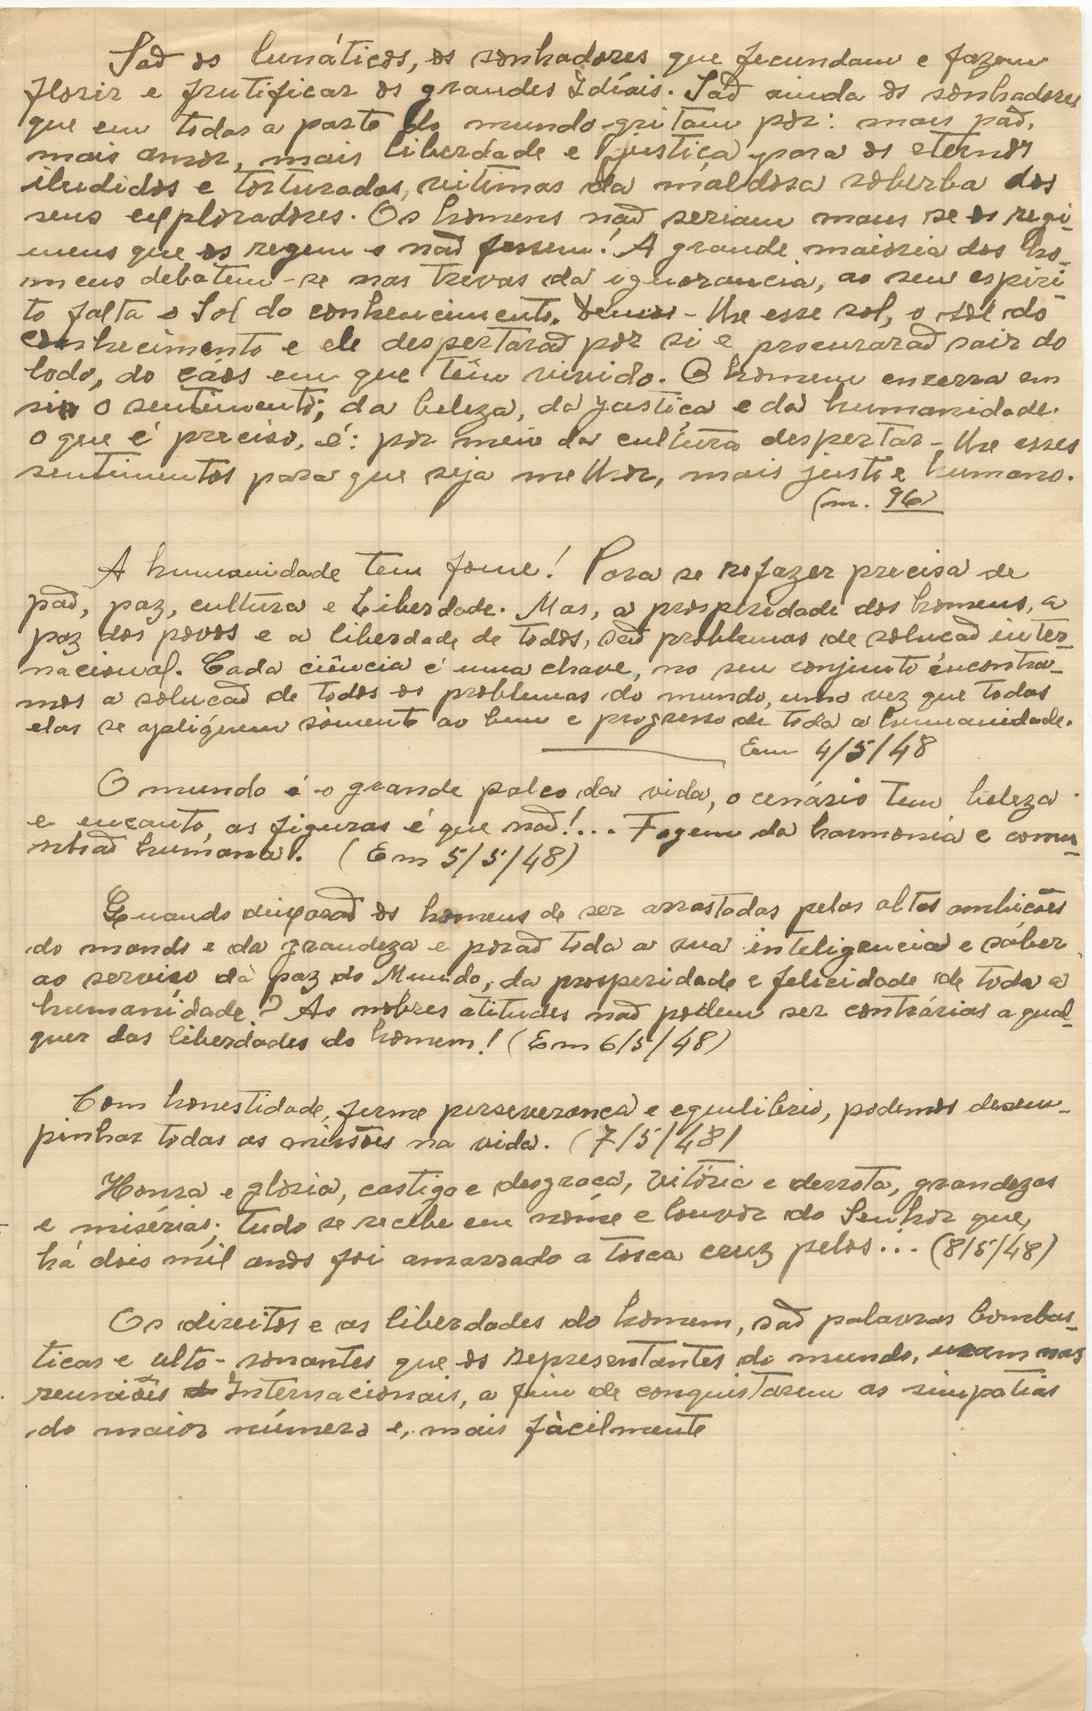 São os lunáticos, os sonhadores que fecundam e fazem
florir e frutificar os grandes Idíais. São ainda os sonhadores
que em todas a parte do mundo gritam por: mais pão,
mais amor, mais liberdade e justiça para os eternos
iludidos e torturados, vitimas da máldosa soberba dos
seus exploradores. Os homens não seriam maus se os regi-
mens que os regem o não fossem! A grande maioria dos ho-
mens debatem-se nas trevas da ignorancia, ao seu espiri-
to falta o Sol do conhencimento. Demos-lhe esse sol, o sol do
conhecimento e ele despertará por si e procurará sair do
lodo, do caos em que têm vivido. O homem encerra em
si o sentimento; da beleza, da justiça e da humanidade.
O que é preciso, é: por meio da cultura despertar-lhe esses
sentimentos para que seja melhor, mais justo e humano.
(m. 96)
A humanidade tem fome! Para se refazer precisa de
pão, paz, cultura e Liberdade. Mas, a prosperidade dos homens, a
paz dos povos e a liberdade de todos, são problemas de solucão inter-
nacional. Cada ciência é uma chave, no seu conjunto encontra-
mos a solucão de todos os problemas do mundo, uma vez que todas
elas se apliquem sòmente ao bem e progresso de toda a humanidade.
Em 4/5/48
O mundo é o grande palco da vida, o cenário tem beleza
e encanto, as figuras é que não!... Fogem da harmonia e comu-
nhão humana. (Em 5/5/48)
Quando deixarão os homens de ser arrastados pelas altas ambicões
do mando e da grandeza e porão toda a sua inteligencia e sáber
ao serviço da paz do Mundo, da prosperidade e felicidade de toda a
humanidade? As nobres atitudes não podem ser contrárias a qual-
quer das liberdades do homem! (Em 6/5/48)
Com honestidade, firme perseverança e equilibrio, podemos desem-
pinhar todas as missões na vida. (7/5/48)
Honra e glória, castigo e desgraca, vitória e derrota, grandezas
e misérias; tudo se recebe em nome e louvor do Senhor que,
há dois mil anos foi amarrado a tosca cruz pelos... (8/5/48)
Os direitos e as liberdades do homem, são palavras bombas-
ticas e alto-sonantes que os representantes do mundo, usam nas
reuniões Internacionais, a fim de conquistarem as simpatias
do maior número e, mais fàcilmente